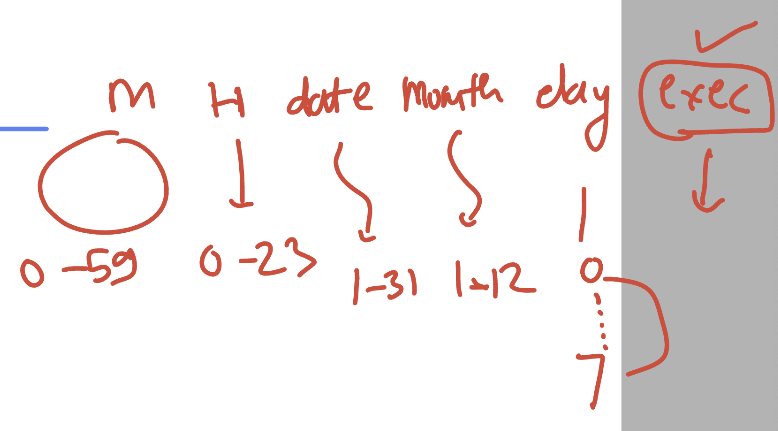 M H date month day exec
0-59 0-23 1-31 1-12 0
7